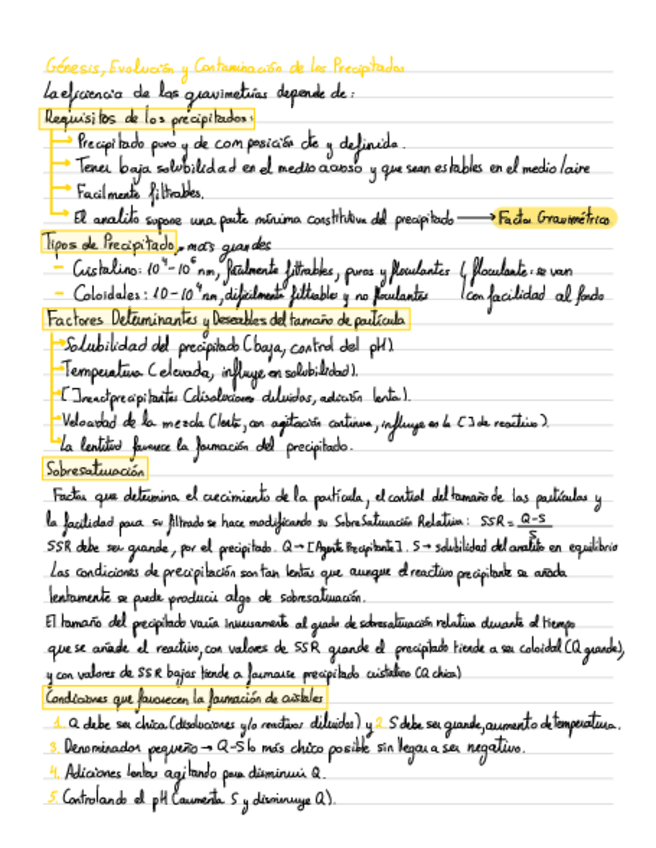 Génesis, Evolución y Contaminación de los Precipitados
La eficiencia de las gravimetrías depende de:
Requisitos de los precipitados:
Precipitado puro y de composición cte y definida.
Tener baja solubilidad en el medio acuoso y que sean estables en el medio/aire
Facilmente filtrables.
El analito supone una parte mínima constitutiva del precipitado → Factor Gravimétrico
Tipos de Precipitado, más grandes
- Cristalino: 10⁴-10⁵ nm, fácilmente filtrables, puros y floculantes { floculante: se van
- Coloidales: 10-10⁴ nm, difícilmente filtrable y no floculantes con facilidad al fondo
Factores Determinantes y Deseables del tamaño de partícula
Solubilidad del precipitado (baja, control del pH)
Temperatura (elevada, influye en solubilidad).
[ ] react precipitantes (disoluciones diluidas, adición lenta).
Velocidad de la mezcla (lenta, con agitación continua, influye en la [ ] de reactivo).
La lentitud favorece la formación del precipitado.
Sobresaturación
Factor que determina el crecimiento de la partícula, el control del tamaño de las partículas y
la facilidad para su filtrado se hace modificando su SobreSaturación Relativa: SSR = Q-S/S
SSR debe ser grande, por el precipitado. Q → [Agente Precipitante]. S → solubilidad del analito en equilibrio
Las condiciones de precipitación son tan lentas que aunque el reactivo precipitante se añada
lentamente se puede producir algo de sobresaturación.
El tamaño del precipitado varía inversamente al grado de sobresaturación relativa durante el tiempo
que se añade el reactivo, con valores de SSR grande el precipitado tiende a ser coloidal (Q grande),
y con valores de SSR bajos tiende a formarse precipitado cristalino (Q chica)
Condiciones que favorecen la formación de cristales
1. Q debe ser chica (disoluciones y/o reactivos diluidos) y 2. S debe ser grande, aumento de temperatura.
3. Denominador pequeño → Q-S lo más chico posible sin llegar a ser negativo.
4. Adiciones lentas agitando para disminuir Q.
5. Controlando el pH (aumenta S y disminuye Q).